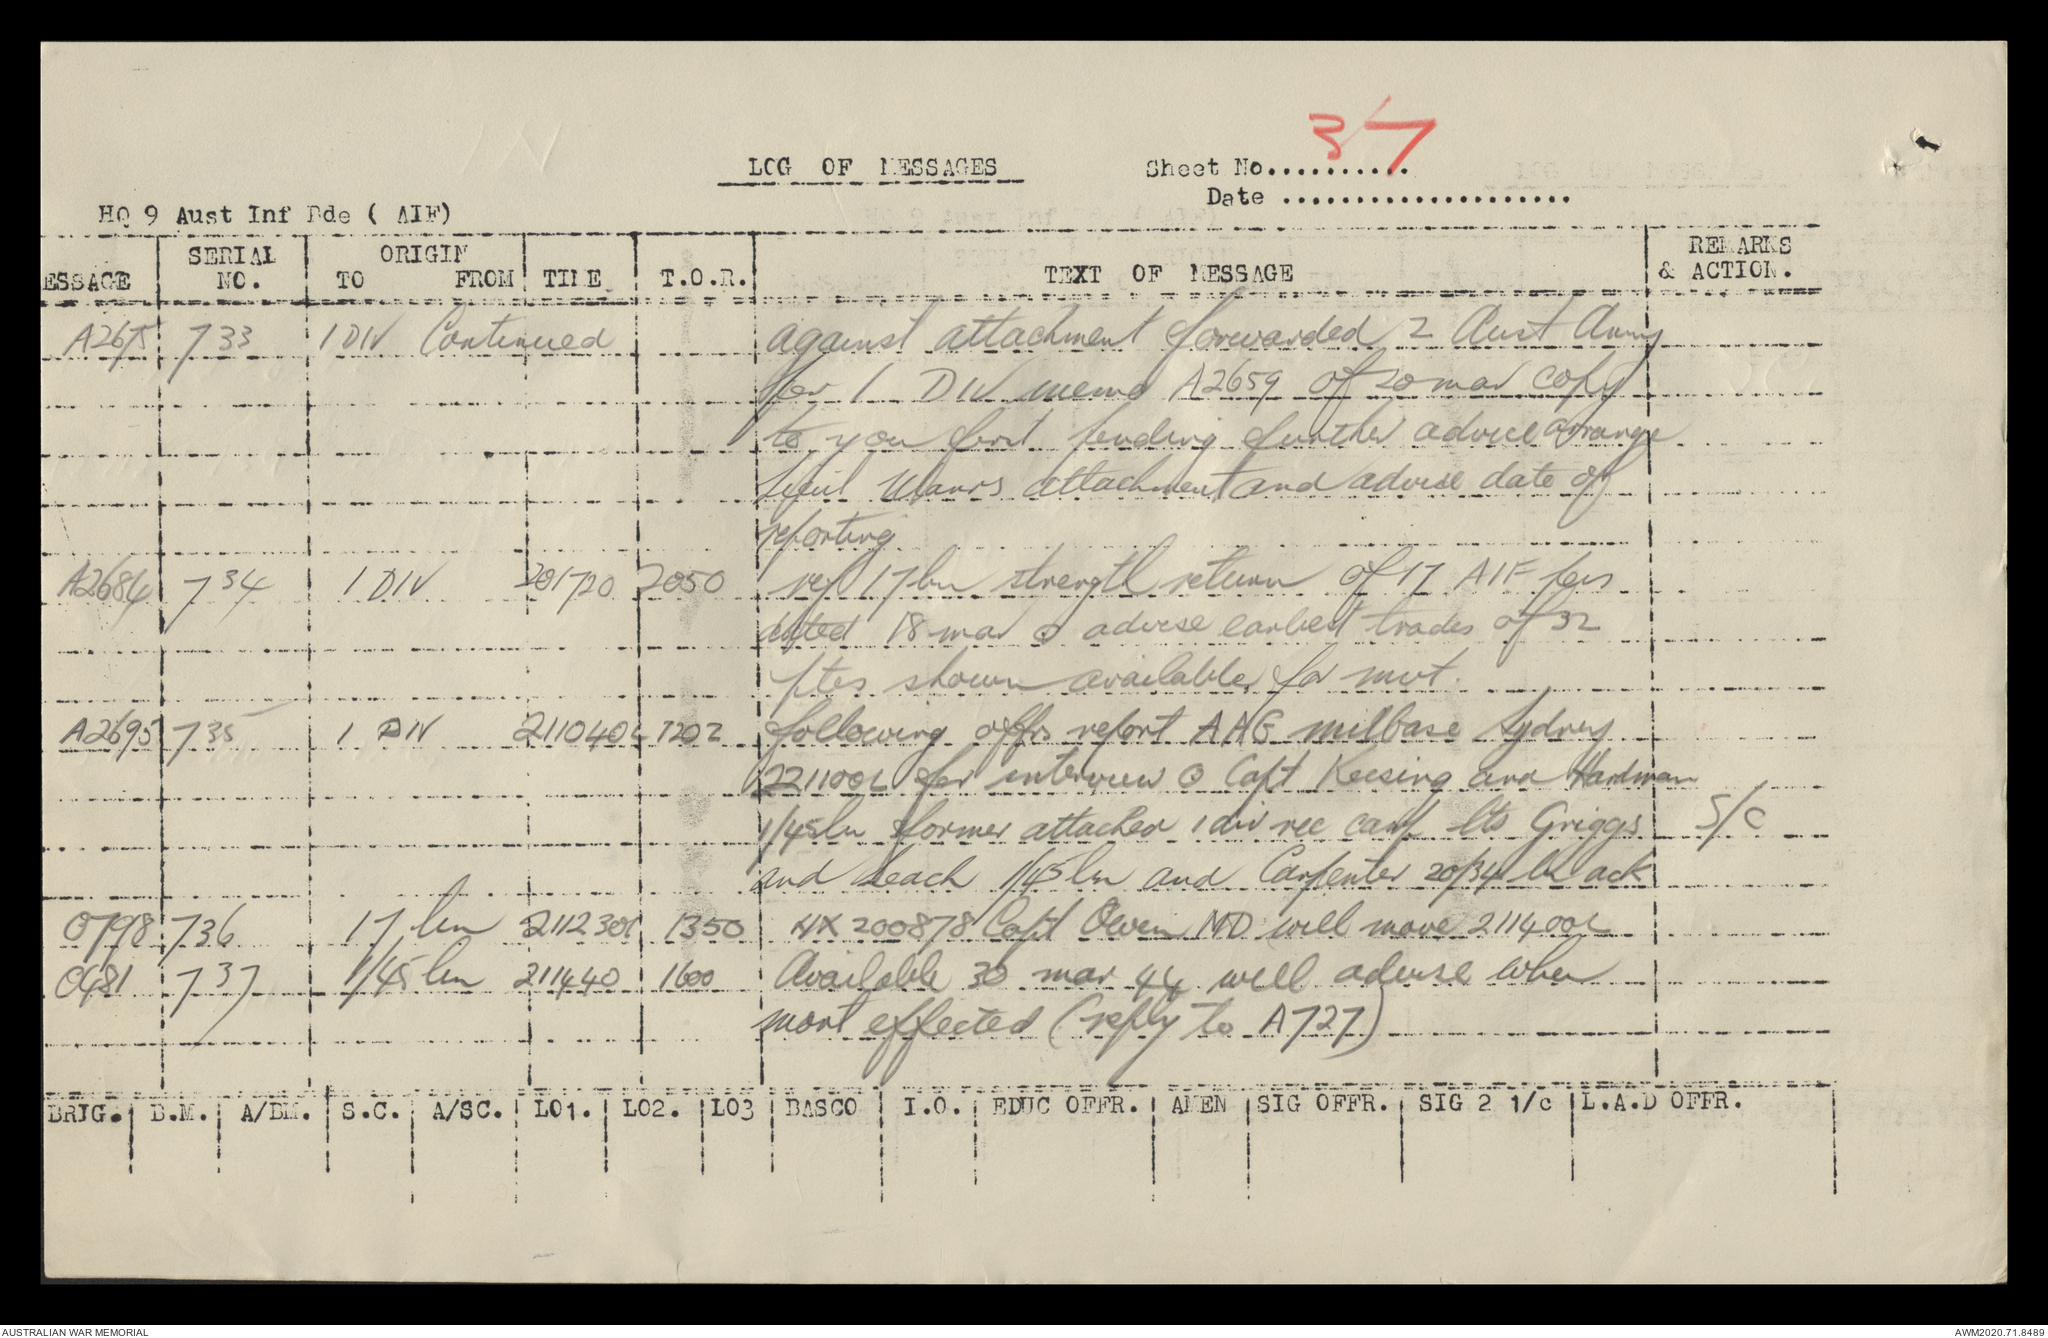 37
LOG OF MESSAGES Sheet No..........
Date .....................
HQ 9 Aust Inf Bde ( AIF)
ESSAGE SERIAL NO. ORIGIN TO FROM TIME T.O.R. TEXT OF MESSAGE REMARKS & ACTION.
A2675 733 1 DIV Continued against attachment forwarded 2 Aust Army
per 1 DIV memo A2659 of 20 mar copy
to you first pending further advice arrange
attachment and advise date of
reporting
A2684 734 1 DIV 201720 2050 ref 17 bn strength return of 17 AIF pers
dated 18 mar @ advise earliest trades of 32
ptes shown available for mvt.
A2695 735 1 DIV 211040L 1202 following offrs report AAG milbase Sydney
221100L for interview @ Capt Keesing and Hardman
1/45 bn former attached 1 div rec camp Lts Griggs S/C
and Leach 1/45 bn and Carpenter 20/34 bn ack
0798 736 17 bn 211230L 1350 NX 200878 Capt Owen MD will move 211400L
0981 737 1/45 bn 211440 1600 Available 30 mar 44 will advise when
mont effected (reply to A727)
BRIG. B.M. A/BM. S.C. A/SC. LO1. LO2. LO3 BASCO I.O. EDUC OFFR. AMEN SIG OFFR. SIG 2 1/c L.A.D OFFR.
AUSTRALIAN WAR MEMORIAL AWM2020.71.8489